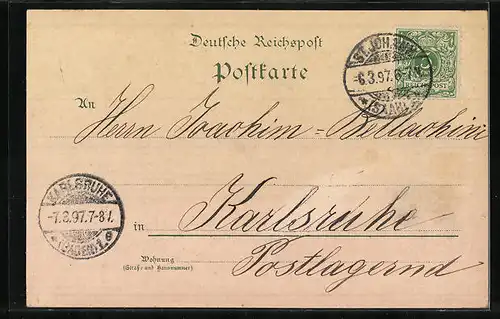 Deutsche Reichspost
Postkarte
ST. JOHANN
-6.3.97.6-7N.
*(SAAR)*
An
Herrn Joachim-Bellachini
KARLSRUHE
-7.3.97.7-8V.
*(BADEN)1.g
in Karlsruhe
Wohnung
(Straße und Hausnummer)
Postlagernd